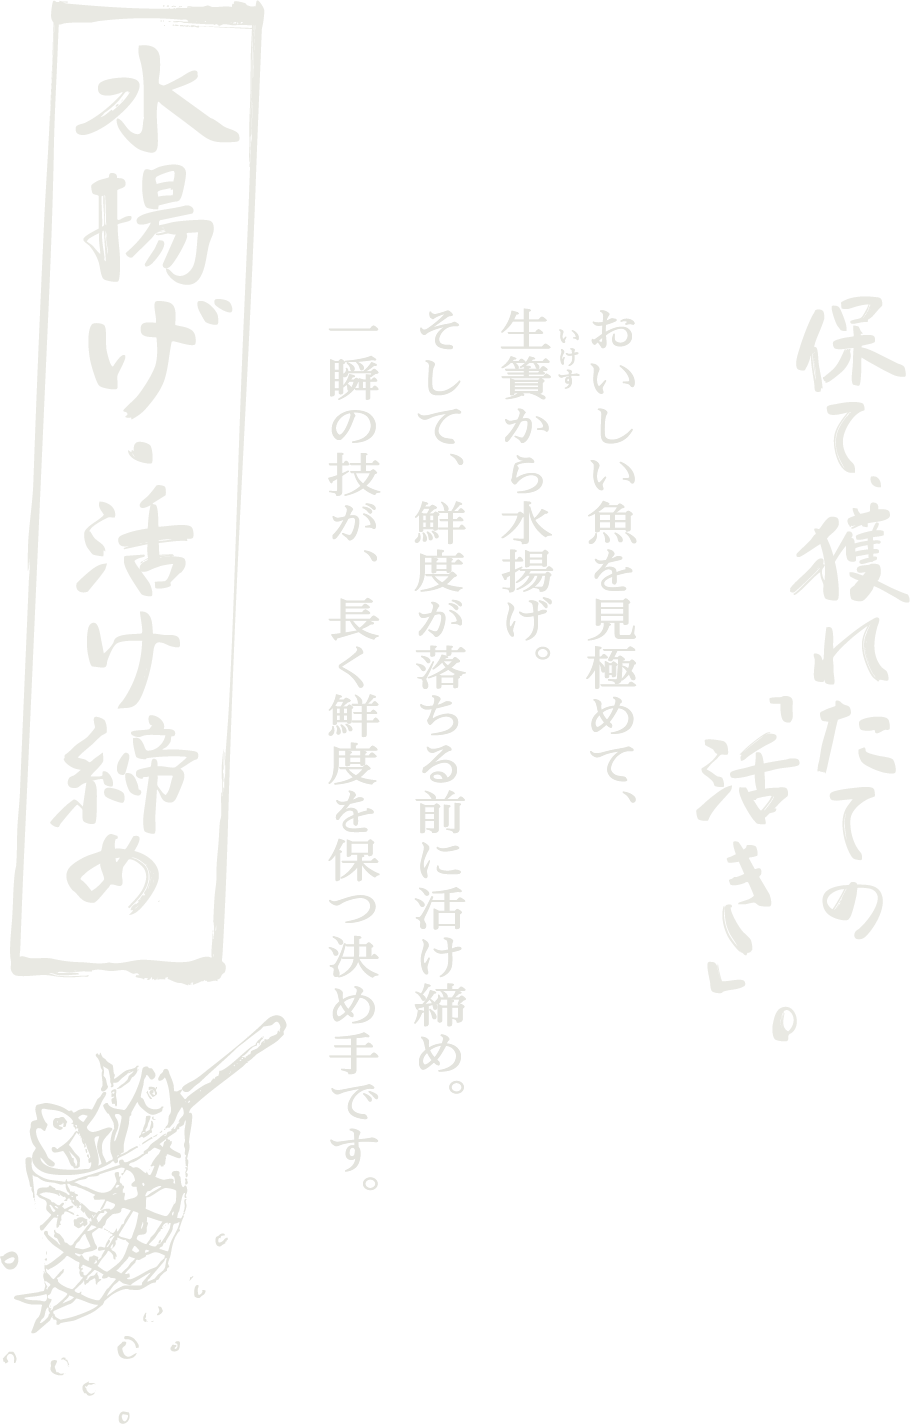 保て、獲れたての
「活き」。
おいしい魚を見極めて、
いけす
生簀から水揚げ。
そして、鮮度が落ちる前に活け締め。
一瞬の技が、長く鮮度を保つ決め手です。
水揚げ・活け締め